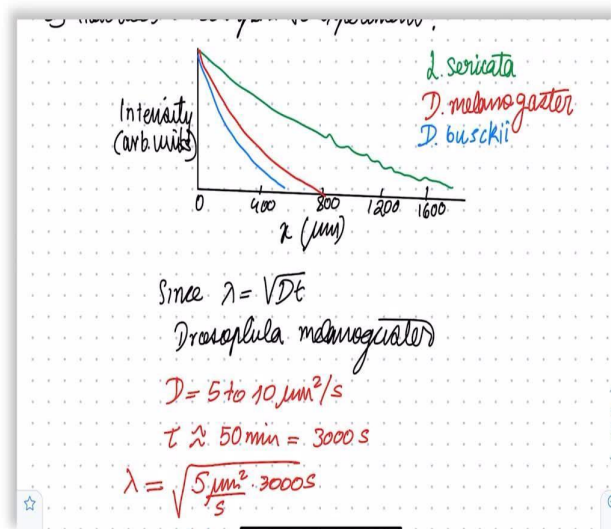 L. sericata
Intensity
(arb. units)
D. melanogaster
D. busckii
0 400 800 1200 1600
x (μm)
Since λ = √Dt
Drosophila melanogaster
D = 5 to 10 μm²/s
τ ≈ 50 min = 3000 s
λ = √5 μm²/s · 3000 s